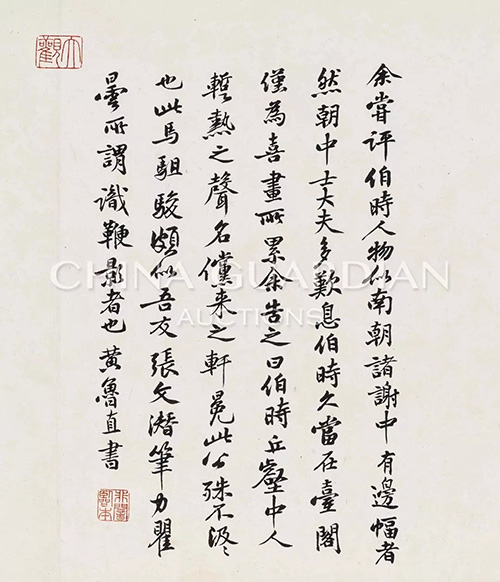 大觀
余嘗評伯時人物似南朝諸謝中有邊幅者
然朝中士大夫多歎息伯時久當在臺閣
僅為喜畫所累余告之曰伯時丘壑中人
暫熱之聲名儻来之軒冕此公殊不汲々
也此馬駔駿頗似吾友張文潛筆力瞿
曇所謂識鞭影者也黃魯直書
CHINA GUARDIAN
AUCTIONS